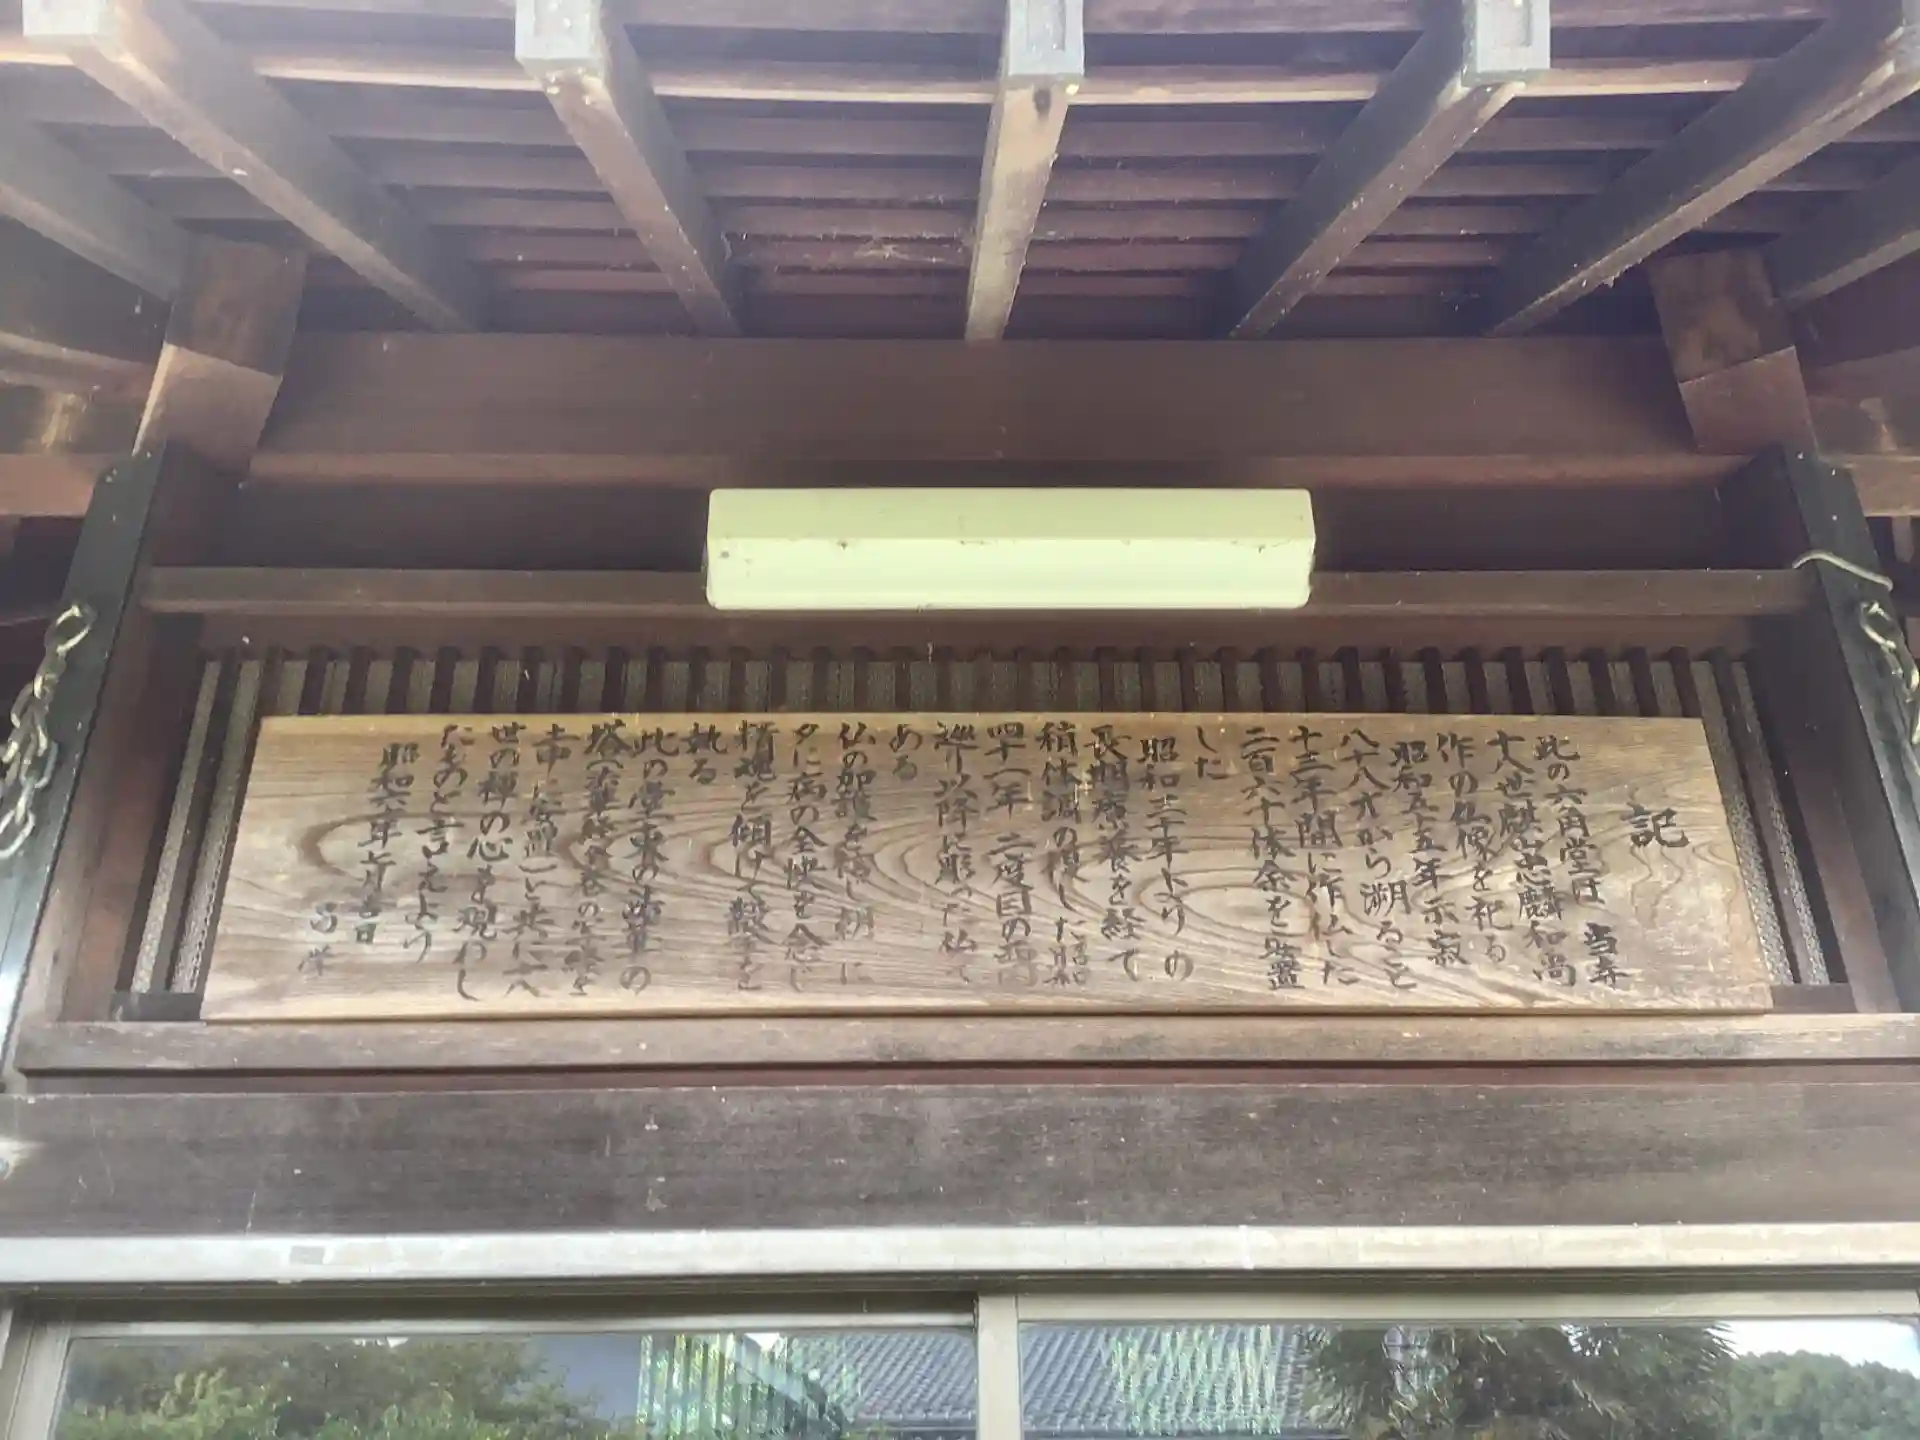 記
此の六角堂は 当寺
十八世麒山恵麟和尚
作の仏像を祀る
昭和五十五年示寂
八十八才から溯ること
十三年間に作仏した
二百六十体余を安置
した
昭和三十年より の
長期療養を経て
稍体調の復した昭和
四十一年 二度目の
巡り以降に彫った仏
ある
仏の加護を信じ 朝に
夕に病の全快を念じ
精魂を傾けて
執る
此の堂 東の 法華の
塔
土中に安置)と共に十八
世の禅の心を現わし
たものと言えよう
昭和六 年七月吉日